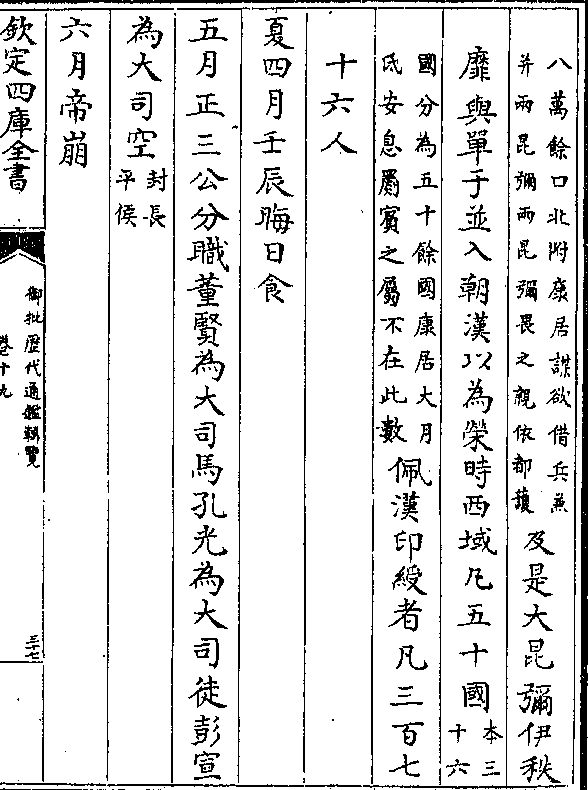 八萬餘口北附康居謀欲借兵兼
并兩昆彌兩昆彌畏之親依都護
及是大昆彌伊秩
靡與單于並入朝漢以為榮時西域凡五十國
本三
十六
國分為五十餘國康居大月
氐安息罽賓之屬不在此數
佩漢印綬者凡三百七
十六人
夏四月壬辰晦日食
五月正三公分職董賢為大司馬孔光為大司徒彭宣
為大司空
封長
平侯
六月帝崩
欽定四庫全書
御批歷代通鑑輯覽
卷十九
三七